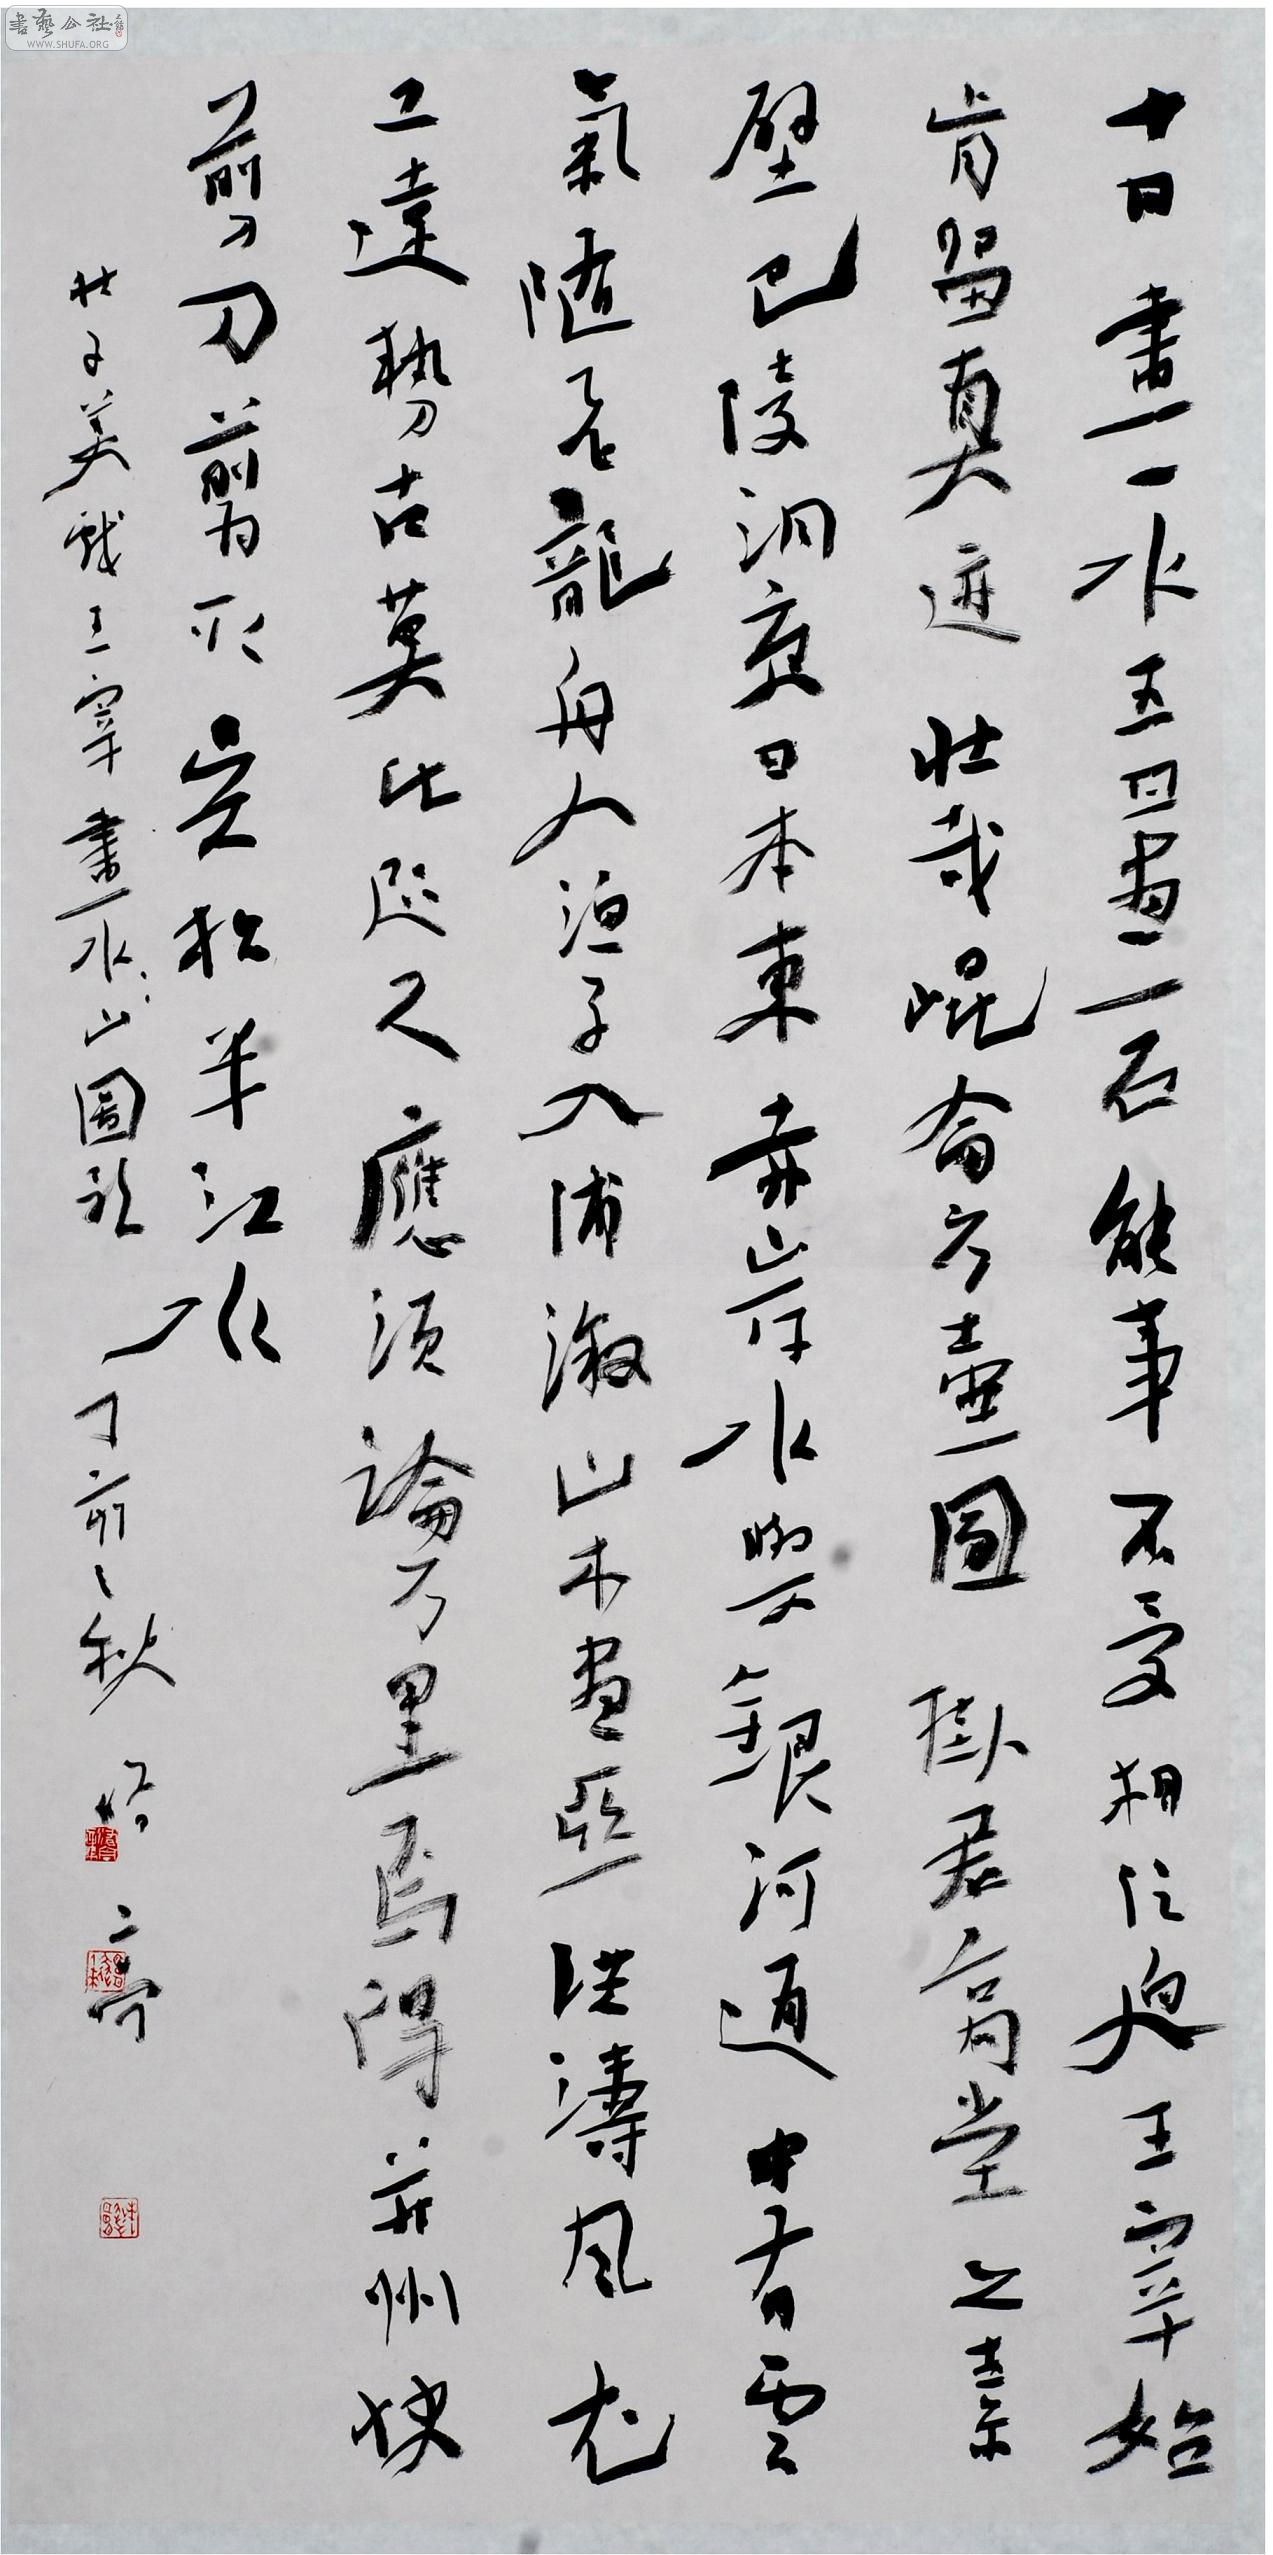 十日畫一水五日畫一石能事不受相促迫王宰始
肯留真迹壯哉崐崙方壺圖掛君高堂之素
壁巴陵洞庭日本東赤岸水與銀河通中有雲
氣隨飛龍舟人漁子入浦漵山木盡亞洪濤風尤
工遠勢古莫比咫尺應須論万里焉得并州快
剪刀剪取吳松半江水
杜子美戲王宰畫水山圖歌 丁 秋
書藝公社
WWW.SHUFA.ORG